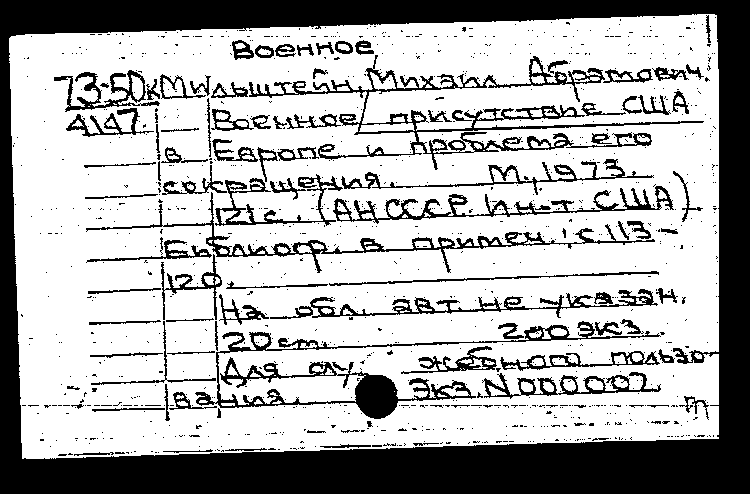 Военное
73-50к Мильштейн, Михаил Абрамович.
4147. Военное присутствие США
в Европе и проблема его
сокращения. М., 1973.
121 с. (АН СССР. Ин-т США)
Библиогр. в примеч.: с 113-
120.
На обл. авт. не указан.
20 см. 200 экз.
Для служебного пользо-
вания. Экз. N 000002